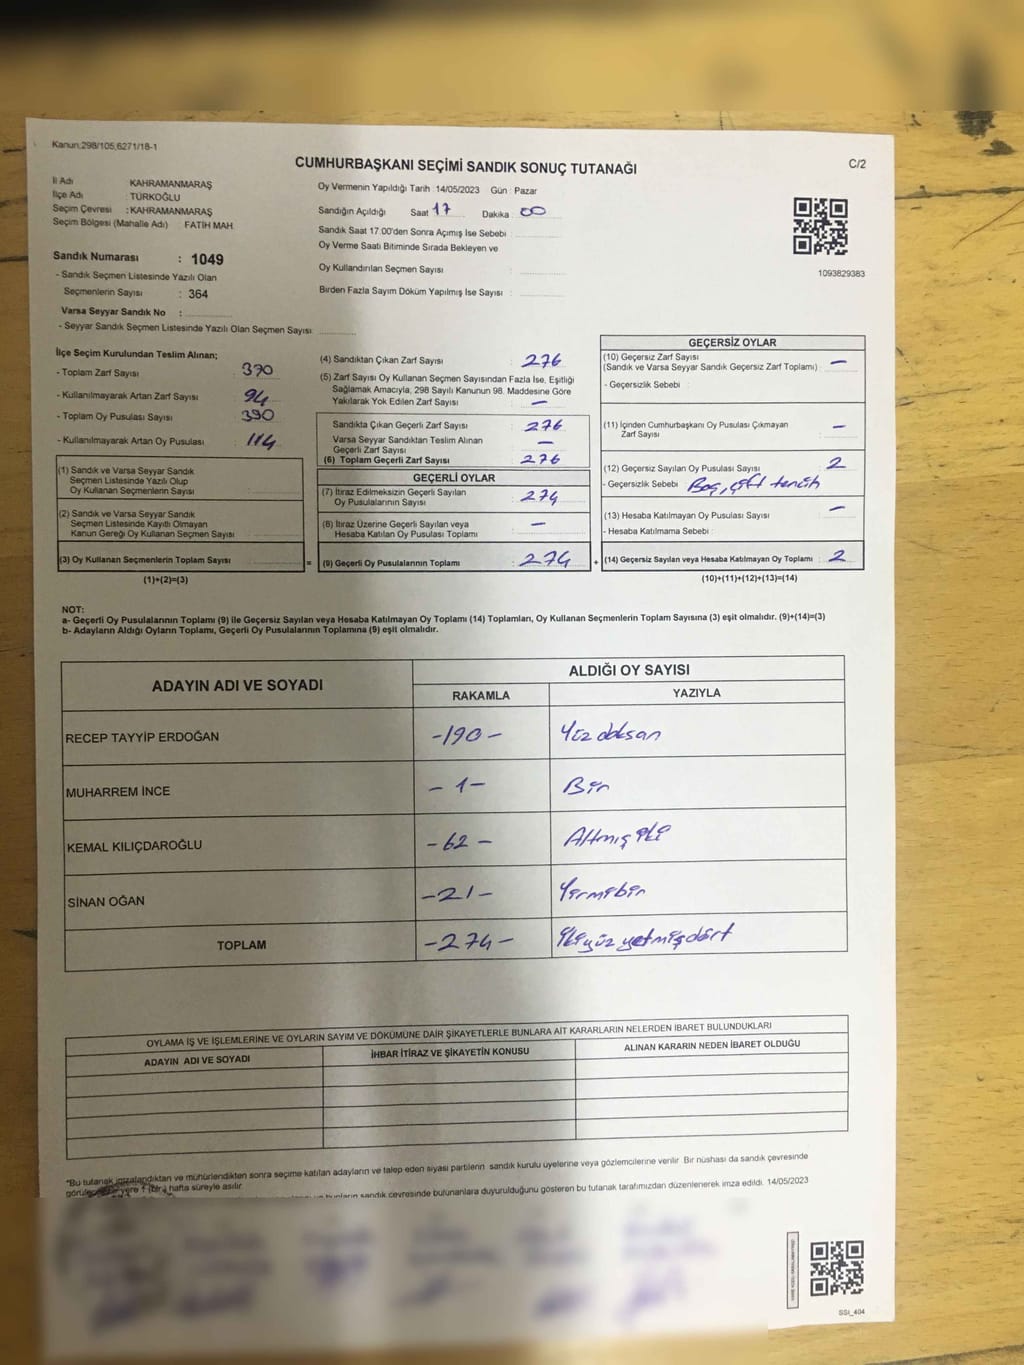 Kanun:298/105,6271/18-1
CUMHURBAŞKANI SEÇİMİ SANDIK SONUÇ TUTANAĞI
C/2
İl Adı KAHRAMANMARAŞ
İlçe Adı : TÜRKOĞLU
Seçim Çevresi : KAHRAMANMARAŞ
Seçim Bölgesi (Mahalle Adı) FATİH MAH.
Sandık Numarası : 1049
- Sandık Seçmen Listesinde Yazılı Olan
Seçmenlerin Sayısı : 364
Varsa Seyyar Sandık No :
- Seyyar Sandık Seçmen Listesinde Yazılı Olan Seçmen Sayısı:
Oy Vermenin Yapıldığı Tarih 14/05/2023 Gün : Pazar
Sandığın Açıldığı Saat 17 Dakika : 00
Sandık Saat 17.00'den Sonra Açımış İse Sebebi :
Oy Verme Saati Bitiminde Sırada Bekleyen ve
Oy Kullandırılan Seçmen Sayısı :
Birden Fazla Sayım Döküm Yapılmış İse Sayısı :
1093829383
İlçe Seçim Kurulundan Teslim Alınan;
- Toplam Zarf Sayısı : 370
- Kullanılmayarak Artan Zarf Sayısı : 94
- Toplam Oy Pusulası Sayısı : 390
- Kullanılmayarak Artan Oy Pusulası : 114
(1) Sandık ve Varsa Seyyar Sandık
Seçmen Listesinde Yazılı Olup
Oy Kullanan Seçmenlerin Sayısı :
(2) Sandık ve Varsa Seyyar Sandık
Seçmen Listesinde Kayıtlı Olmayan
Kanun Gereği Oy Kullanan Seçmen Sayısı :
(3) Oy Kullanan Seçmenlerin Toplam Sayısı :
(1)+(2)=(3)
=
(4) Sandıktan Çıkan Zarf Sayısı : 276
(5) Zarf Sayısı Oy Kullanan Seçmen Sayısından Fazla İse, Eşitliği
Sağlamak Amacıyla, 298 Sayılı Kanunun 98. Maddesine Göre
Yakılarak Yok Edilen Zarf Sayısı : —
Sandıkta Çıkan Geçerli Zarf Sayısı : 276
Varsa Seyyar Sandıktan Teslim Alınan
Geçerli Zarf Sayısı : —
(6) Toplam Geçerli Zarf Sayısı : 276
GEÇERLİ OYLAR
(7) İtiraz Edilmeksizin Geçerli Sayılan
Oy Pusulalarının Sayısı : 274
(8) İtiraz Üzerine Geçerli Sayılan veya
Hesaba Katılan Oy Pusulası Toplamı : —
(9) Geçerli Oy Pusulalarının Toplamı : 274
+
GEÇERSİZ OYLAR
(10) Geçersiz Zarf Sayısı
(Sandık ve Varsa Seyyar Sandık Geçersiz Zarf Toplamı) : —
- Geçersizlik Sebebi :
(11) İçinden Cumhurbaşkanı Oy Pusulası Çıkmayan
Zarf Sayısı : —
(12) Geçersiz Sayılan Oy Pusulası Sayısı : 2
- Geçersizlik Sebebi : Boş, çift tercih
(13) Hesaba Katılmayan Oy Pusulası Sayısı : —
- Hesaba Katılmama Sebebi :
(14) Geçersiz Sayılan veya Hesaba Katılmayan Oy Toplamı : 2
(10)+(11)+(12)+(13)=(14)
NOT:
a- Geçerli Oy Pusulalarının Toplamı (9) ile Geçersiz Sayılan veya Hesaba Katılmayan Oy Toplamı (14) Toplamları, Oy Kullanan Seçmenlerin Toplam Sayısına (3) eşit olmalıdır. (9)+(14)=(3)
b- Adayların Aldığı Oyların Toplamı, Geçerli Oy Pusulalarının Toplamına (9) eşit olmalıdır.
ADAYIN ADI VE SOYADI
ALDIĞI OY SAYISI
RAKAMLA YAZIYLA
RECEP TAYYİP ERDOĞAN -190- Yüz doksan
MUHARREM İNCE -1- Bir
KEMAL KILIÇDAROĞLU -62- Altmış iki
SİNAN OĞAN -21- Yirmibir
TOPLAM -274- İkiyüz yetmişdört
OYLAMA İŞ VE İŞLEMLERİNE VE OYLARIN SAYIM VE DÖKÜMÜNE DAİR ŞİKAYETLERLE BUNLARA AİT KARARLARIN NELERDEN İBARET BULUNDUKLARI
ADAYIN ADI VE SOYADI İHBAR İTİRAZ VE ŞİKAYETİN KONUSU ALINAN KARARIN NEDEN İBARET OLDUĞU
*Bu tutanak imzalandıktan ve mühürlendikten sonra seçime katılan adayların ve talep eden siyasi partilerin sandık kurulu üyelerine veya gözlemcilerine verilir. Bir nüshası da sandık çevresinde
yere 1 (bir) hafta süreyle asılır.
sandık çevresinde bulunanlara duyurulduğunu gösteren bu tutanak tarafımızdan düzenlenerek imza edildi. 14/05/2023
SSI_404